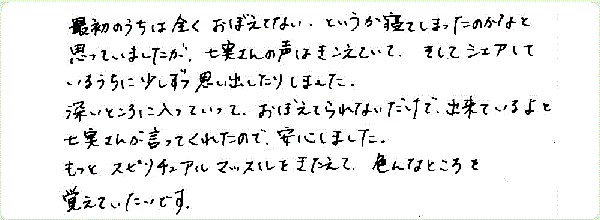 最初のうちは全くおぼえてない、というか寝てしまったのかなと
思っていましたが、七実さんの声はきこえていて、そしてシェアして
いるうちに少しずつ思い出したりしました。
深いところに入っていって、おぼえてられないだけで、出来ているよと
七実さんが言ってくれたので、安心しました。
もっと スピリチュアルマッスルをきたえて、色んなところを
覚えていたいです。